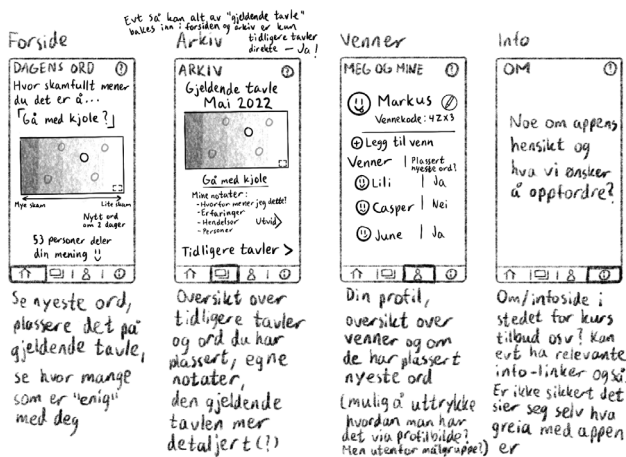 Evt så kan alt av "gjeldende tavle"
bakes inn i forsiden og arkiv er kun
tidligere tavler
direkte — Ja!
Forside
DAGENS ORD ?
Hvor skamfullt mener
du det er å...
"Gå med kjole?"
Mye skam
Lite skam
Nytt ord
om 2 dager
53 personer deler
din mening
Se nyeste ord,
plassere det på
gjeldende tavle,
se hvor mange
som er "enig"
med deg
Arkiv
ARKIV ?
Gjeldende tavle
Mai 2022
Gå med kjole
Mine notater:
-Hvorfor mener jeg dette?
-Erfaringer
-Hendelser
-Personer
Utvid>
Tidligere tavler >
Oversikt over
tidligere tavler
og ord du har
plassert, egne
notater,
den gjeldende
tavlen mer
detaljert(?)
Venner
MEG OG MINE ?
Markus
Vennekode: 4ZX3
+ Legg til venn
Venner | Plassert
nyeste ord?
Lili | Ja
Casper | Nei
June | Ja
Din profil,
oversikt over
venner og om
de har plassert
nyeste ord
(mulig å uttrykke
hvordan man har
det via profilbilde?
Men utenfor målgruppe?)
Info
OM ?
Noe om appens
hensikt og
hva vi ønsker
å oppfordre?
Om/infoside i
stedet for kurs
tilbud osv? Kan
evt ha relevante
info-linker også.
Er ikke sikkert det
sier seg selv hva
greia med appen
er